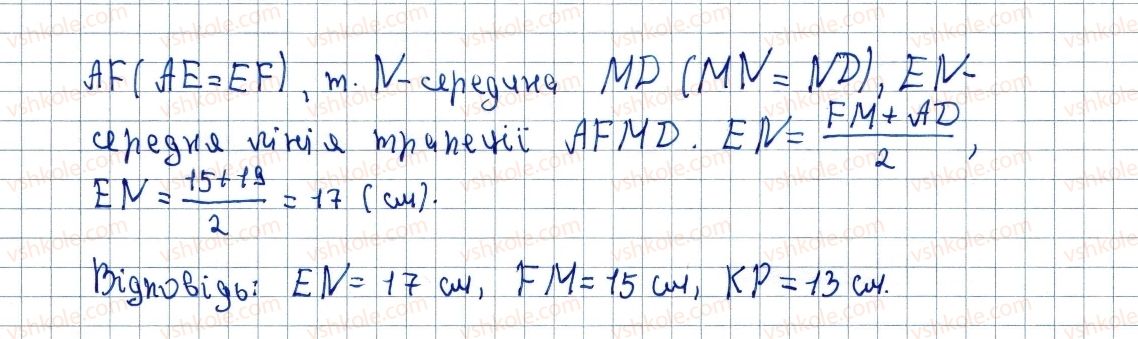 AF (AE = EF), т. N - середина MD (MN = ND), EN -
середня лінія трапеції AFMD. EN = \frac{FM + AD}{2},
EN = \frac{15 + 19}{2} = 17 (см).
Відповідь: EN = 17 см, FM = 15 см, KP = 13 см.